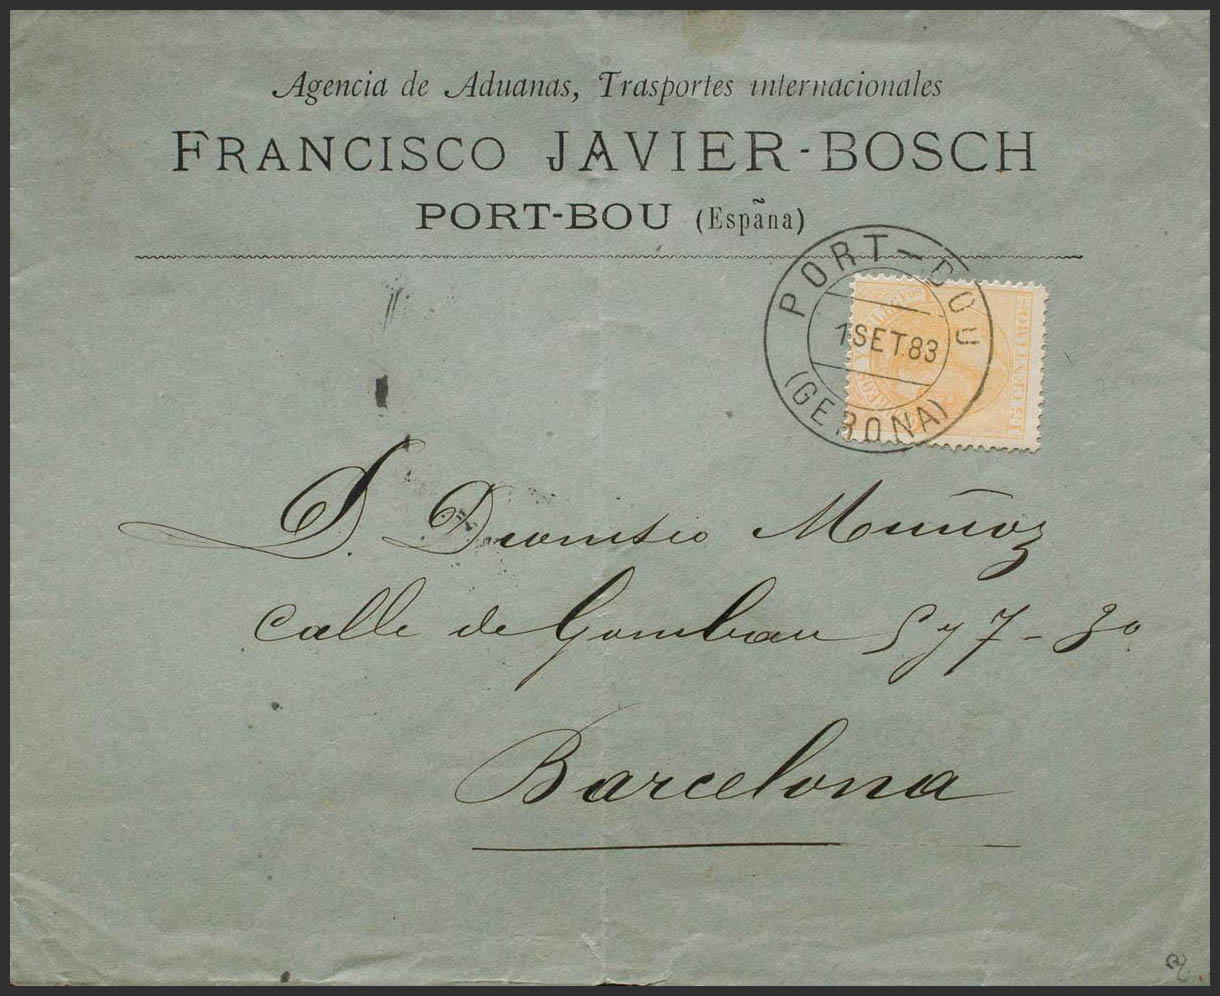 Agencia de Aduanas, Trasportes internacionales
FRANCISCO JAVIER-BOSCH
PORT-BOU (Espãna)
PORT-BOU
1 SET. 83
(GERONA)
CORREOS Y TELEGFOS
15 CENTIMOS
D. Dionisio Muñoz
Calle de Gombau 5 y 7 - 3º
Barcelona